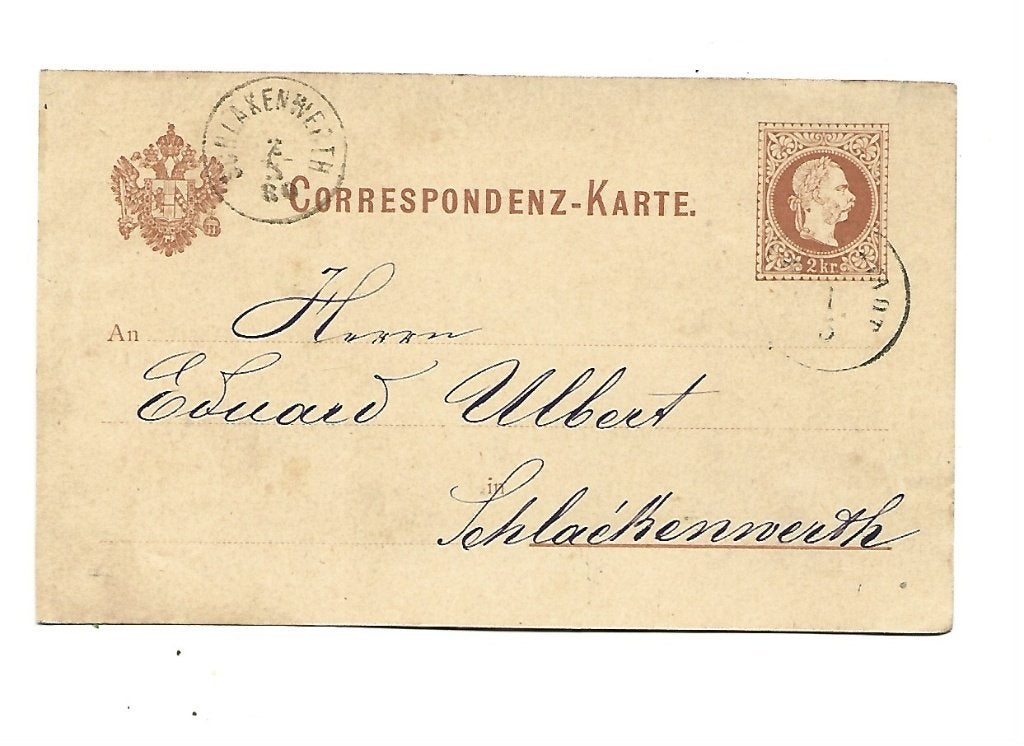 SCHLAKENWERTH
2
5
80
CORRESPONDENZ-KARTE.
2 kr.
1
5
An Herrn
Eduard Ulbert
in
Schlackenwerth